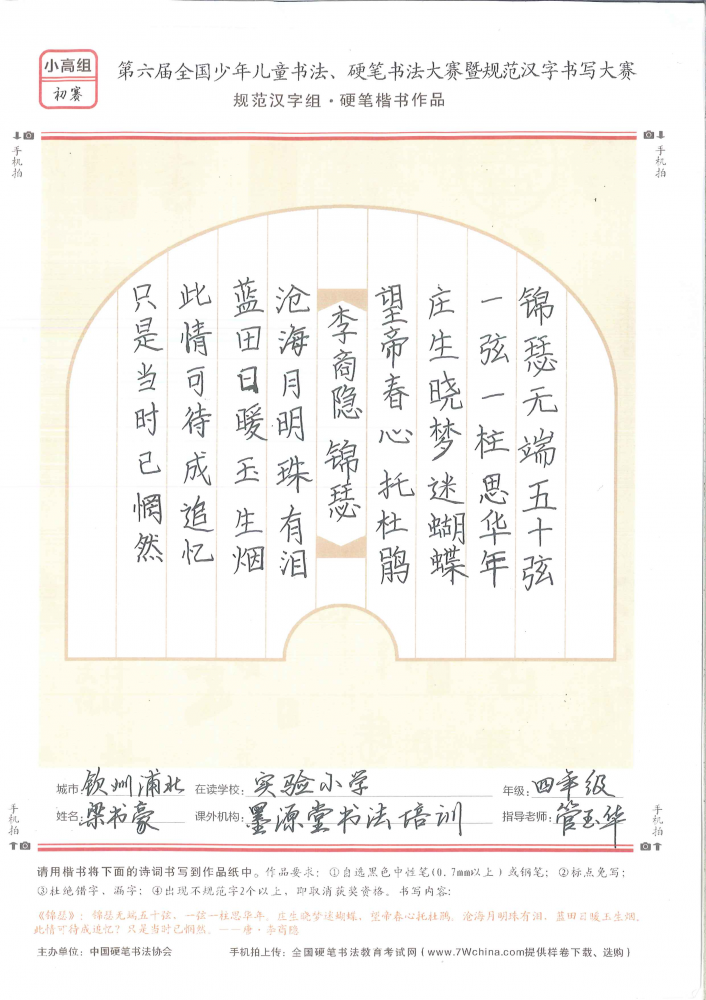 小高组
初赛
第六届全国少年儿童书法、硬笔书法大赛暨规范汉字书写大赛
规范汉字组·硬笔楷书作品
手机拍
手机拍
锦瑟无端五十弦
一弦一柱思华年
庄生晓梦迷蝴蝶
望帝春心托杜鹃
李商隐 锦瑟
沧海月明珠有泪
蓝田日暖玉生烟
此情可待成追忆
只是当时已惘然
城市:钦州浦北 在读学校:实验小学 年级:四年级
姓名:梁书豪 课外机构:墨源堂书法培训 指导老师:管玉华
手机拍
手机拍
请用楷书将下面的诗词书写到作品纸中。作品要求:①自选黑色中性笔(0.7mm以上)或钢笔;②标点免写;
③杜绝错字、漏字;④出现不规范字2个以上,即取消获奖资格。书写内容:
《锦瑟》:锦瑟无端五十弦,一弦一柱思华年。庄生晓梦迷蝴蝶,望帝春心托杜鹃。沧海月明珠有泪,蓝田日暖玉生烟。
此情可待成追忆?只是当时已惘然。——唐·李商隐
主办单位:中国硬笔书法协会 手机拍上传:全国硬笔书法教育考试网(www.7Wchina.com提供样卷下载、选购)